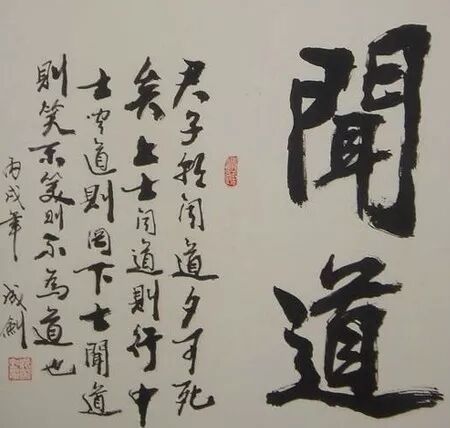 聞道
君子朝闻道夕可死
矣上士闻道則行中
士闻道則罔下士聞道
則笑不笑則不為道也
丙戌年 成劍